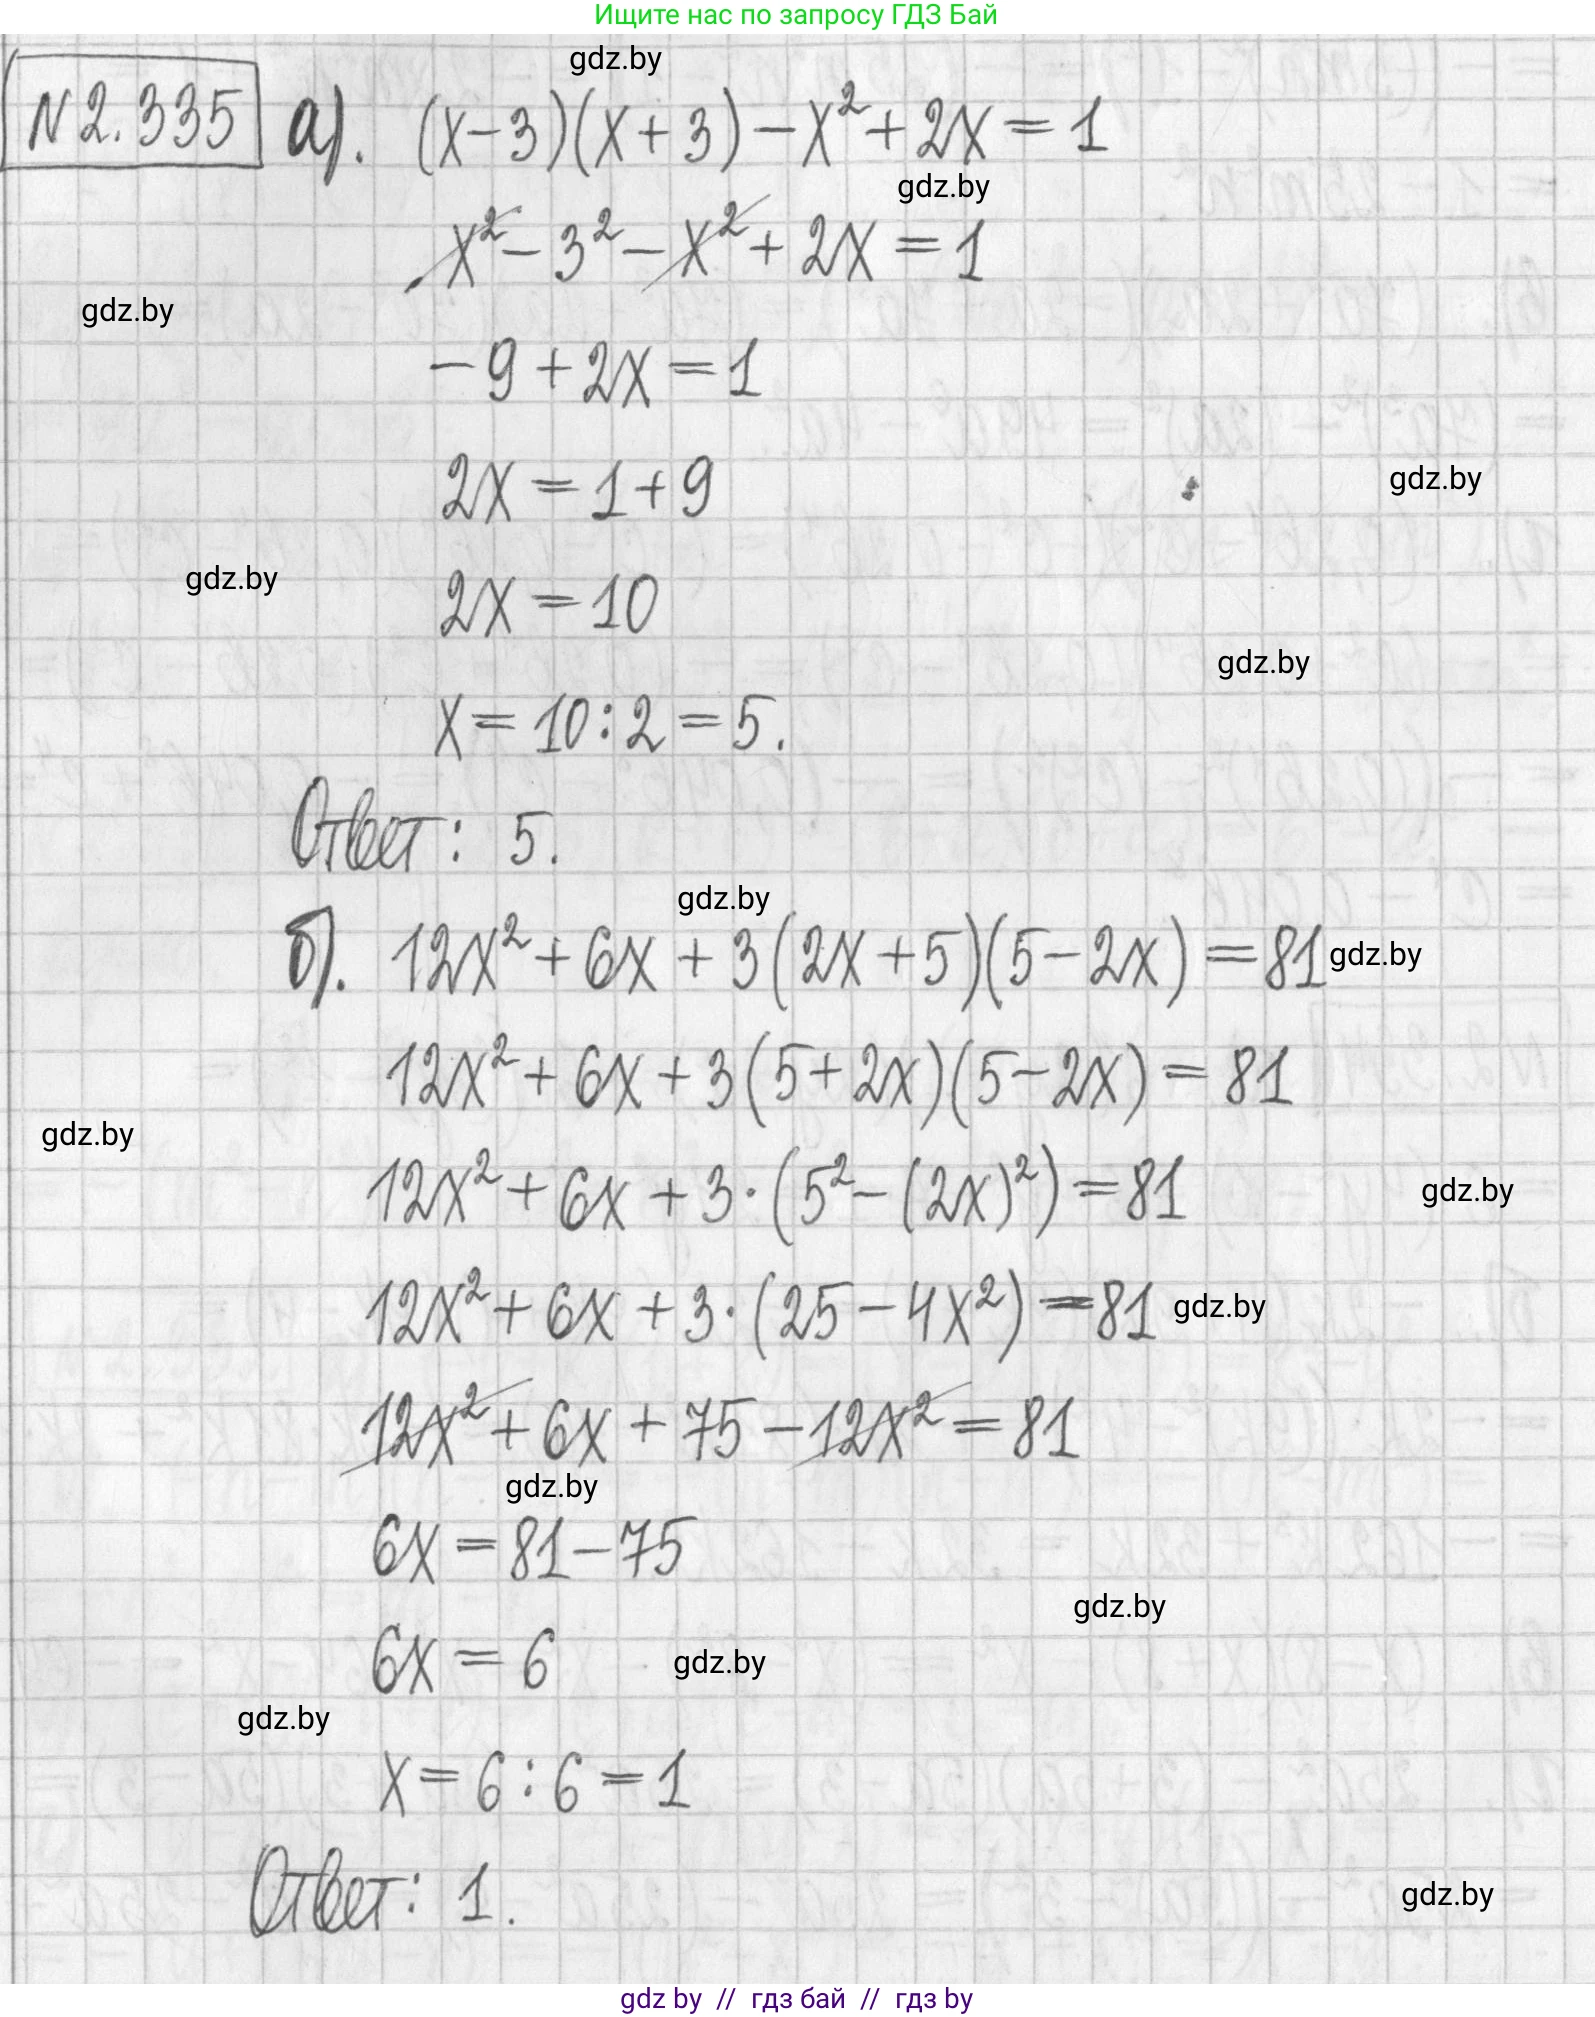 Ищите нас по запросу ГДЗ Бай
gdz.by
№2.335 а). (x-3)(x+3)-x²+2x=1
gdz.by
x²-3²-x²+2x=1
gdz.by
-9+2x=1
2x=1+9
gdz.by
gdz.by
2x=10
gdz.by
x=10:2=5.
Ответ: 5.
gdz.by
б). 12x²+6x+3(2x+5)(5-2x)=81
gdz.by
12x²+6x+3(5+2x)(5-2x)=81
gdz.by
12x²+6x+3·(5²-(2x)²)=81
gdz.by
12x²+6x+3·(25-4x²)=81
gdz.by
12x²+6x+75-12x²=81
gdz.by
6x=81-75
gdz.by
6x=6
gdz.by
gdz.by
x=6:6=1
Ответ: 1.
gdz.by
gdz by // гдз бай // гдз by